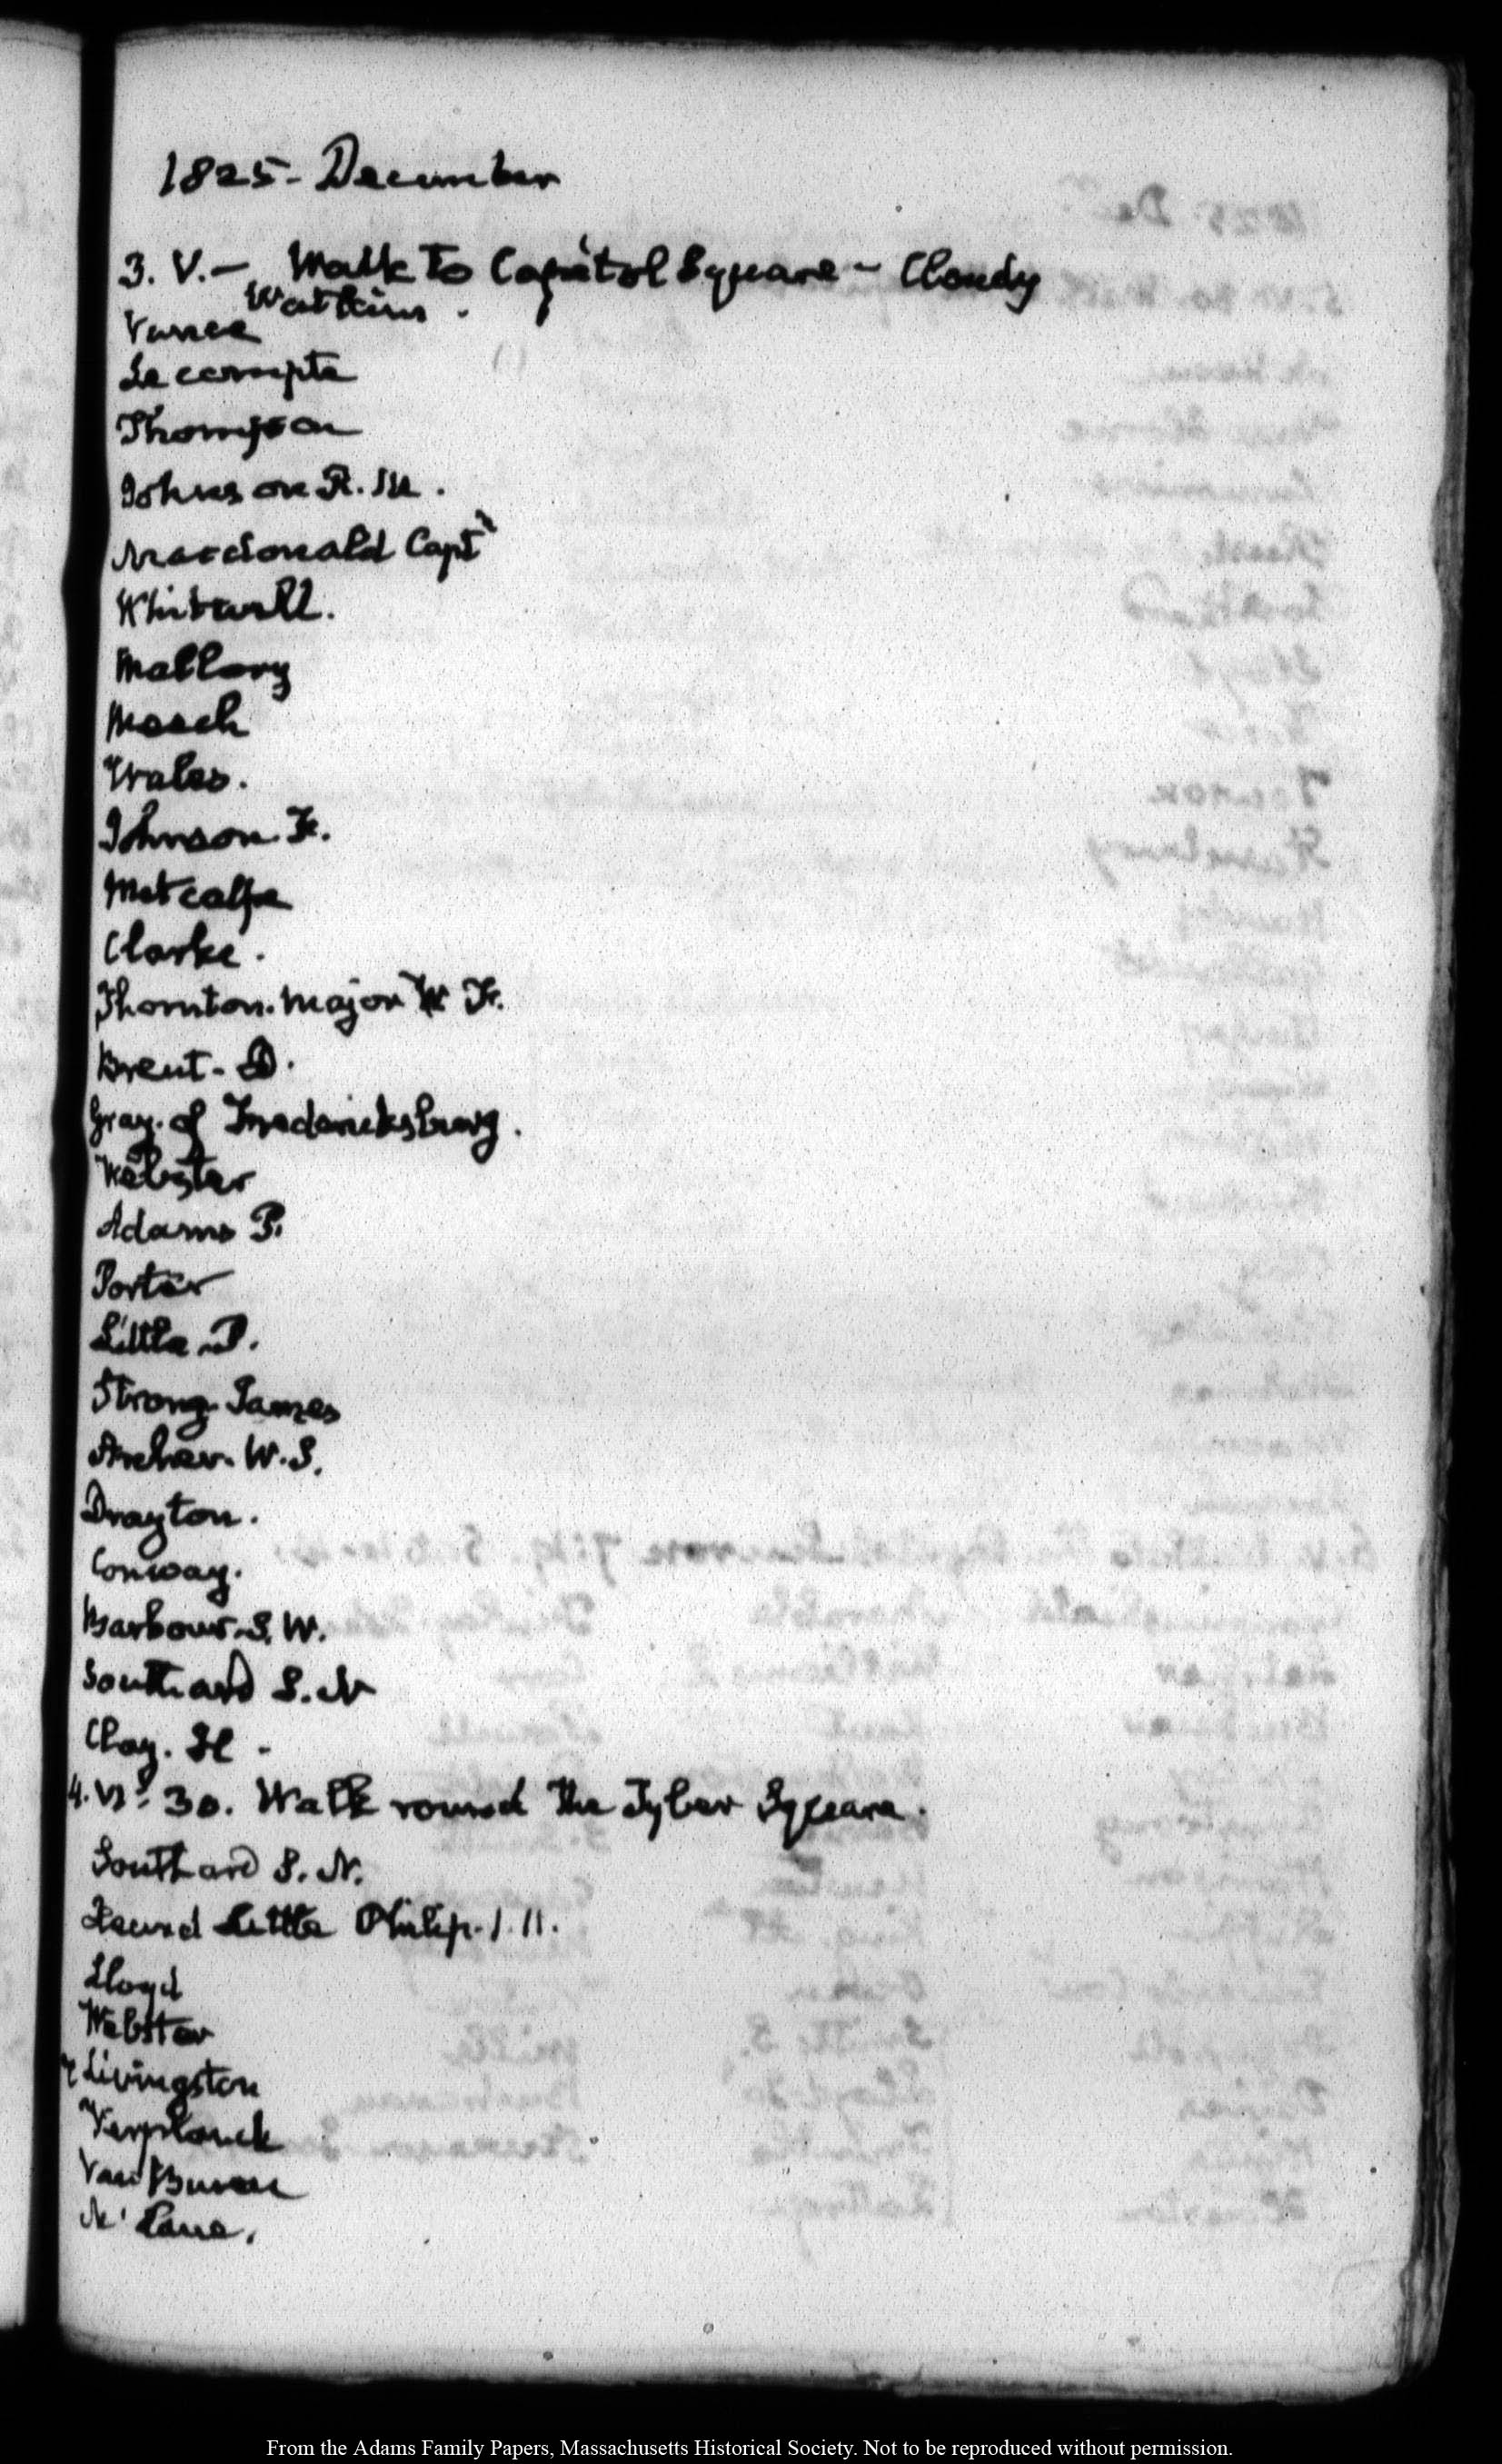 1825 - December
3. V. - Walk to Capitol Square - Cloudy
Watkins.
Vance
Lecompte
Thompson
Johnson R. M.
Macdonald Capt.
Whitwell.
Mallary
Meech
Wales.
Johnson. F.
Metcalfe
Clarke.
Thornton. Major W F.
Brent - D.
Gray. of Fredericksburg.
Webster
Adams P.
Porter
Little. P.
Strong. James
Archer. W. S.
Drayton.
Conway.
Barbour. S. W.
Southard S. N
Clay. H -
4. VI: 30. Walk round the Tyber Square.
Southard S. N.
Round Little Philip. 1. 11.
Lloyd
Webster
Livingston
Verplanck
Van Buren
McLane.
From the Adams Family Papers, Massachusetts Historical Society. Not to be reproduced without permission.